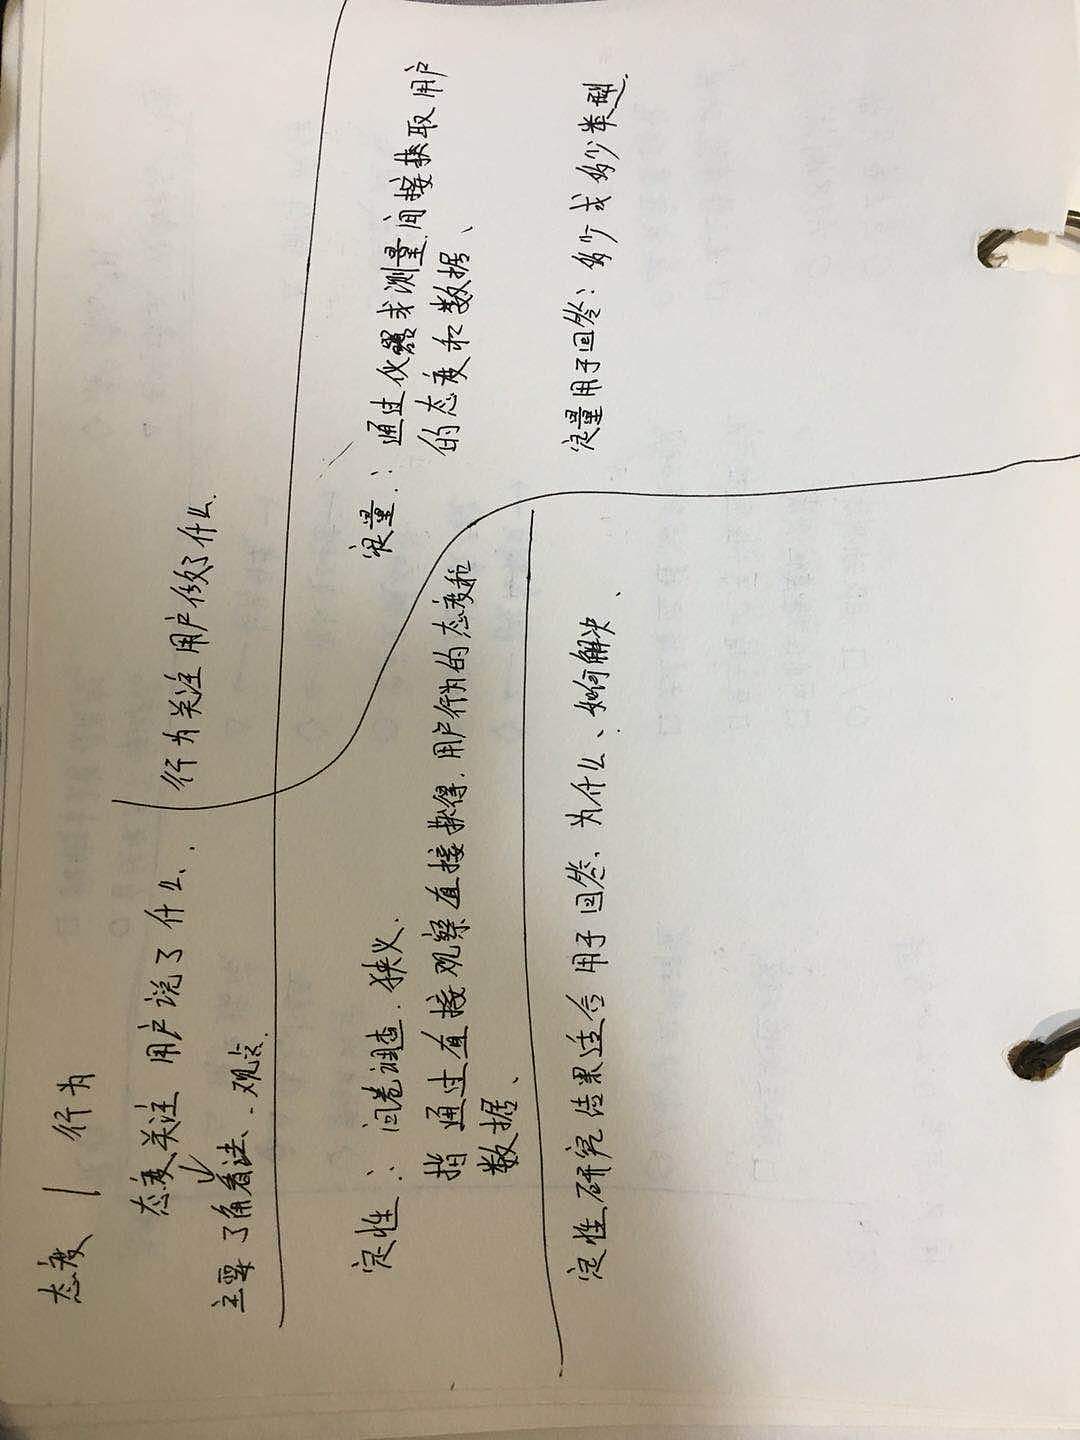 态度 | 行为
态度关注 用户说了什么、
行为关注 用户做了什么.
主要了解看法、观点.
定性：问卷调查.狭义.
指通过直接观察直接获得.用户行为的态度和
数据、
定量：通过仪器或测量.间接获取用户
的态度和数据、
定性研究结果适合用于回答、为什么、如何解决、
定量用于回答：多少或多少类型.